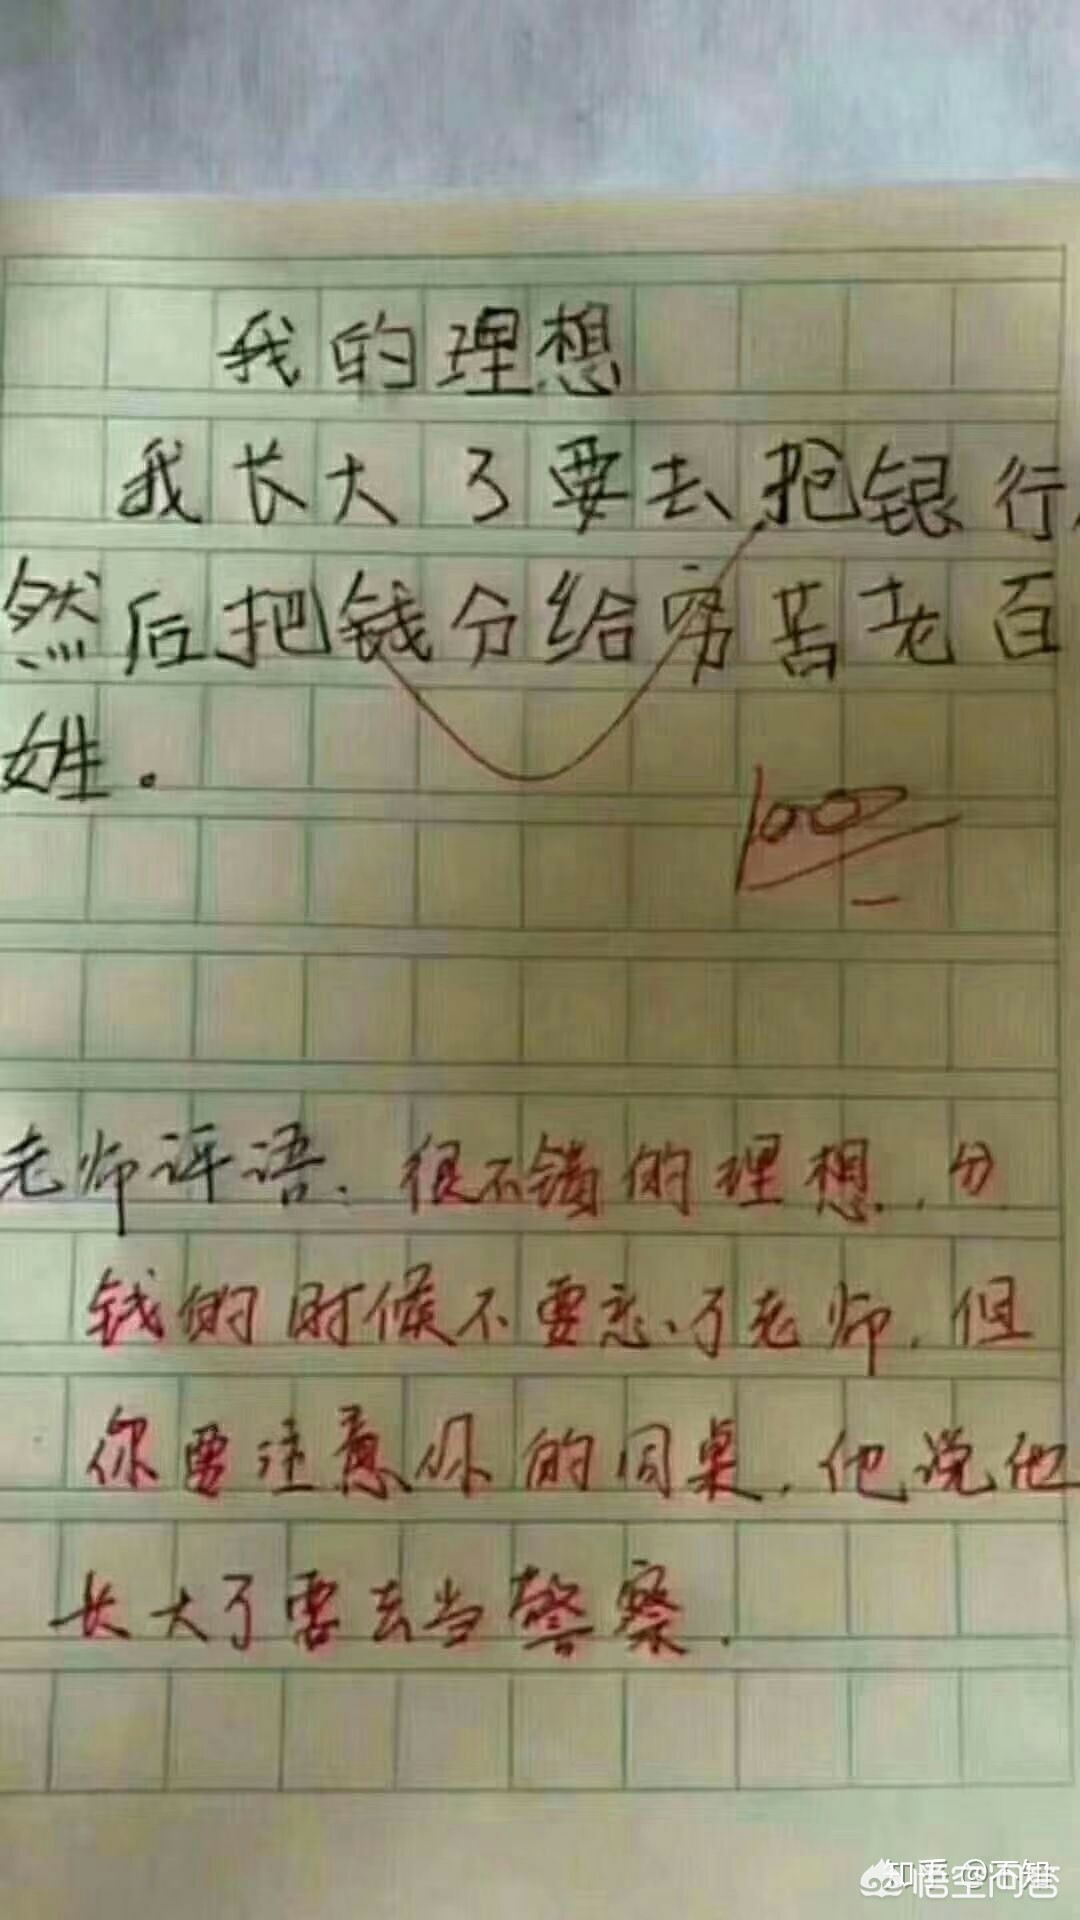 我的理想
我长大了要去抢银行,
然后把钱分给穷苦老百
姓。
100
老师评语:很不错的理想,分
钱的时候不要忘了老师,但
你要注意你的同桌,他说他
长大了要去当警察.
知乎 @不知
悟空问答